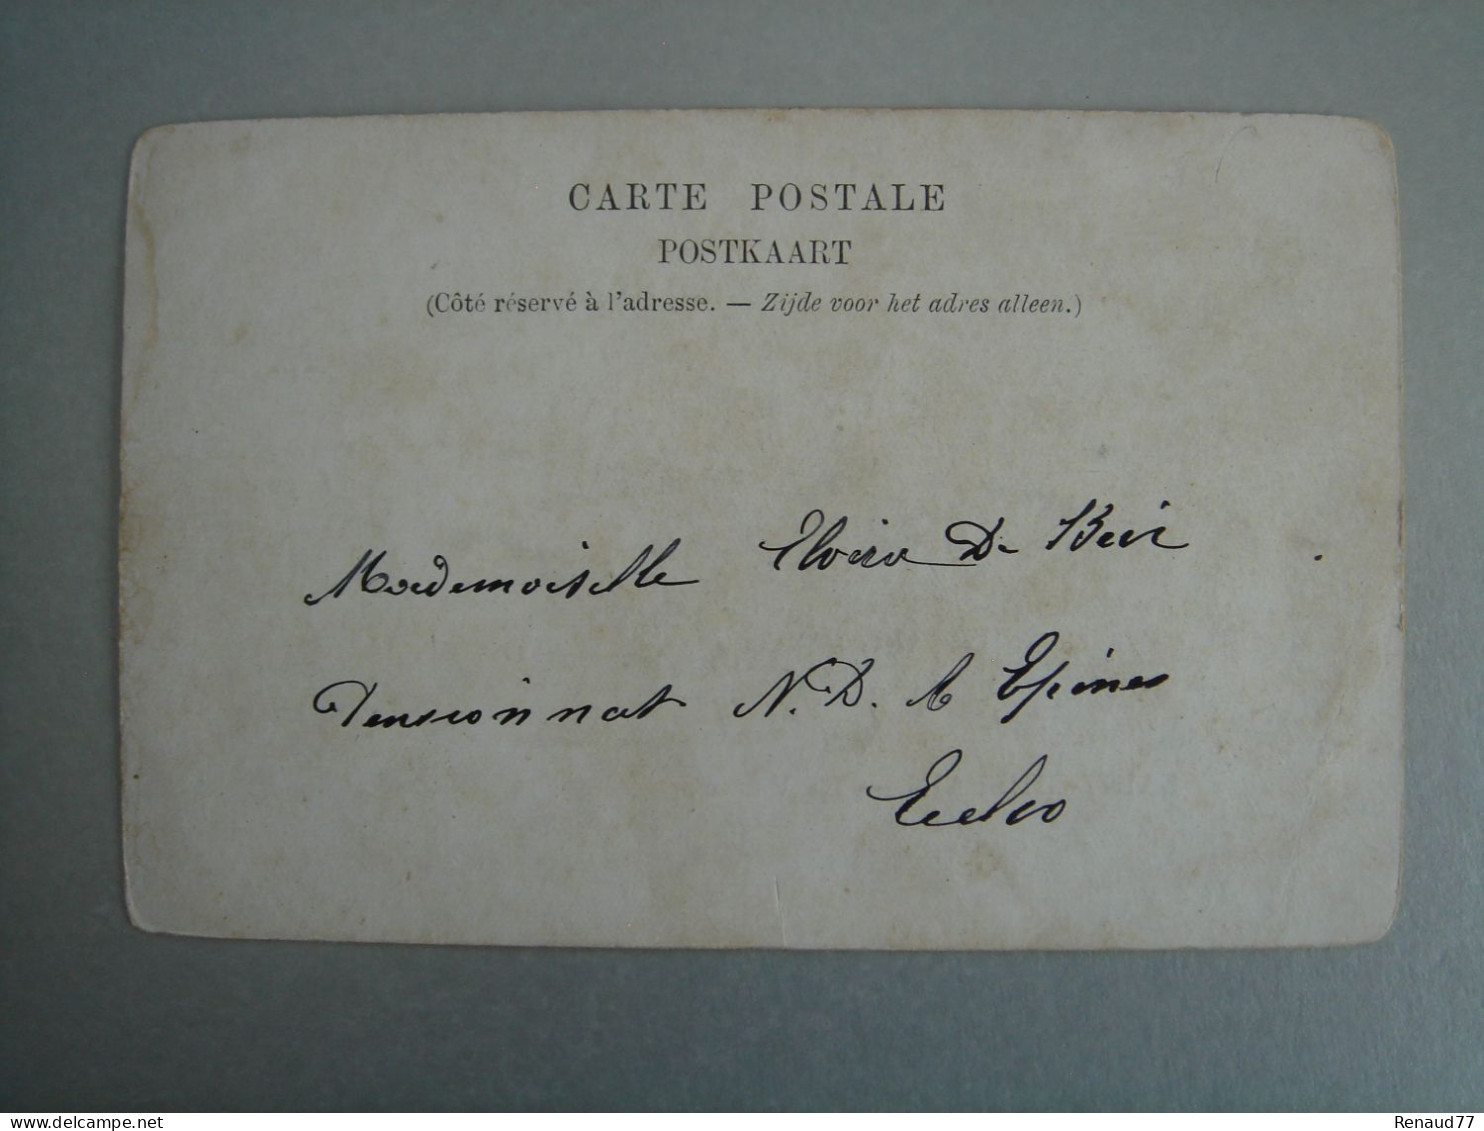 CARTE POSTALE
POSTKAART
(Côté réservé à l'adresse. — Zijde voor het adres alleen.)
Mademoiselle Elvira De
Pensionnat N.D. Epines
Eecloo
Renaud77